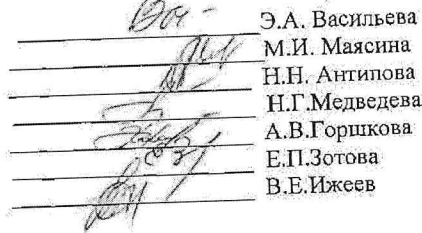 Э.А. Васильева
М.И. Маясина
Н.Н. Антипова
Н.Г.Медведева
А.В.Горшкова
Е.П.Зотова
В.Е.Ижеев